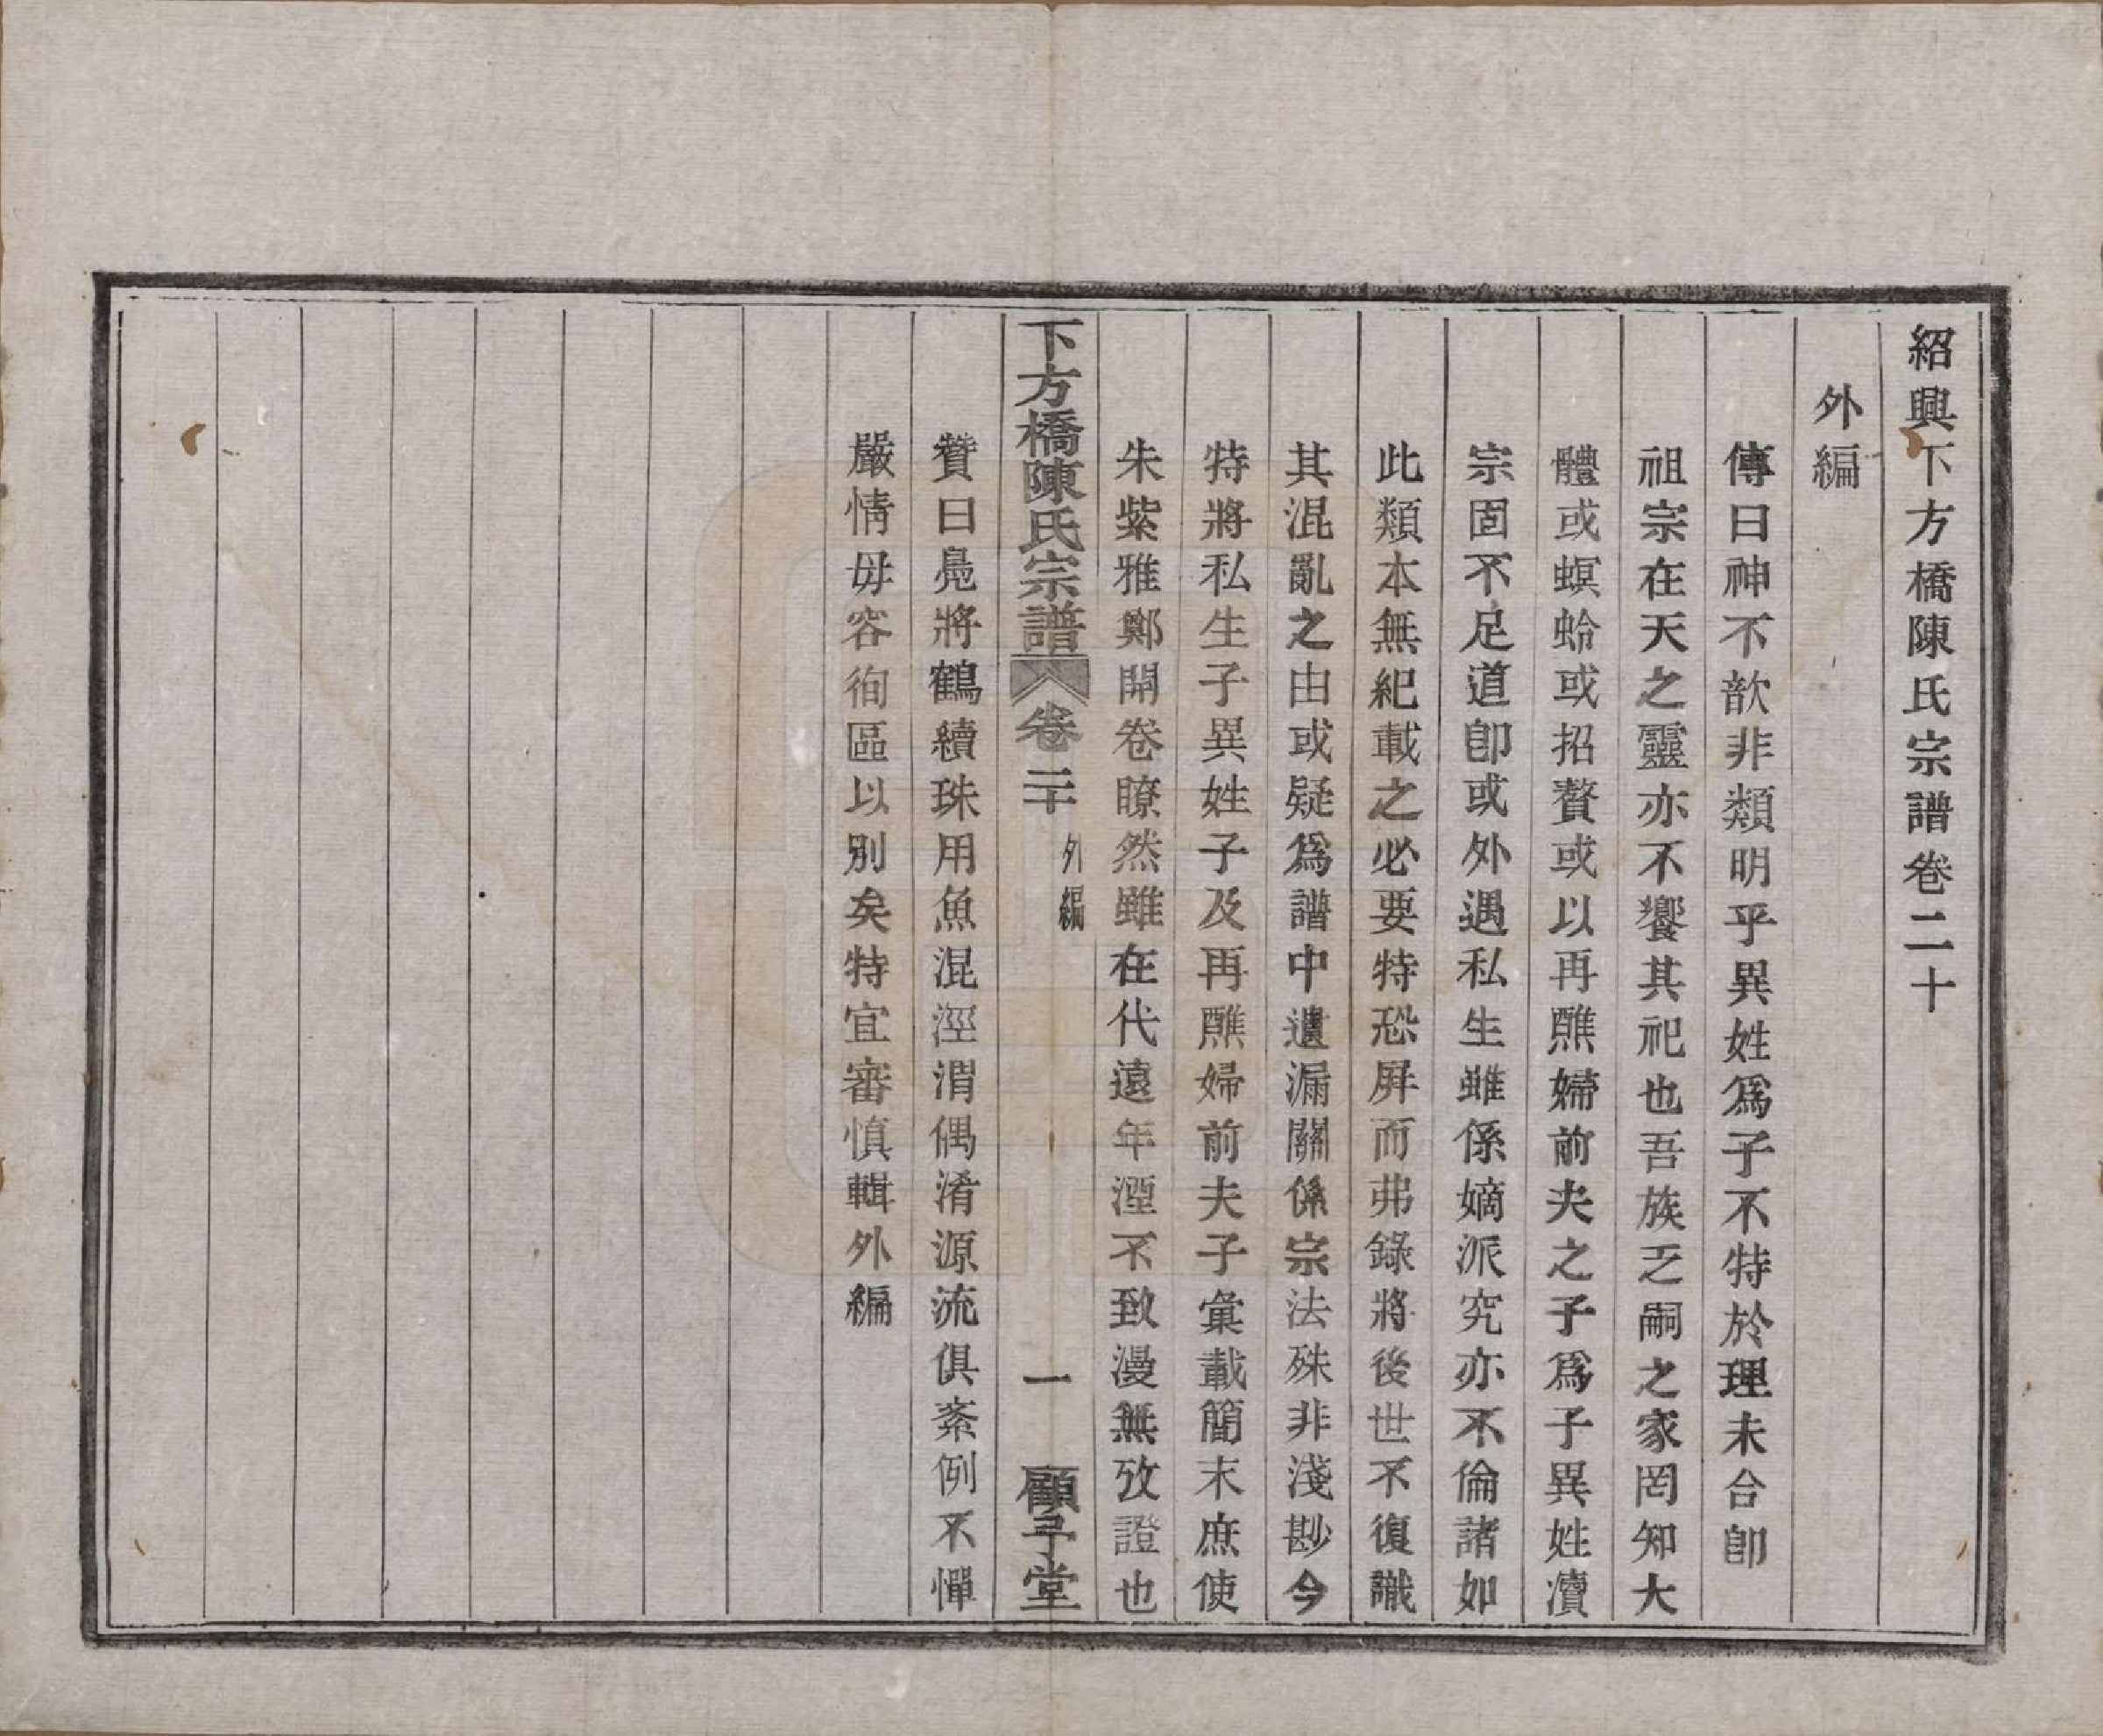 紹興下方橋陳氏宗譜卷二十
外編
傳曰神不歆非類明乎異姓爲子不特於理未合卽
祖宗在天之靈亦不饗其祀也吾族乏嗣之家罔知大
體或螟蛉或招贅或以再醮婦前夫之子爲子異姓瀆
宗固不足道卽或外遇私生雖係嫡派究亦不倫諸如
此類本無紀載之必要特恐屛而弗錄將後世不復識
其混亂之由或疑爲譜中遺漏關係宗法殊非淺尟今
特將私生子異姓子及再醮婦前夫子彙載簡末庶使
朱紫雅鄭開卷瞭然雖在代遠年湮不致漫無攷證也
下方橋陳氏宗譜
卷二十
外編
一
顧予堂
贊曰鳧將鶴續珠用魚混涇渭偶淆源流俱紊例不憚
嚴情毋容徇區以別矣特宜審愼輯外編